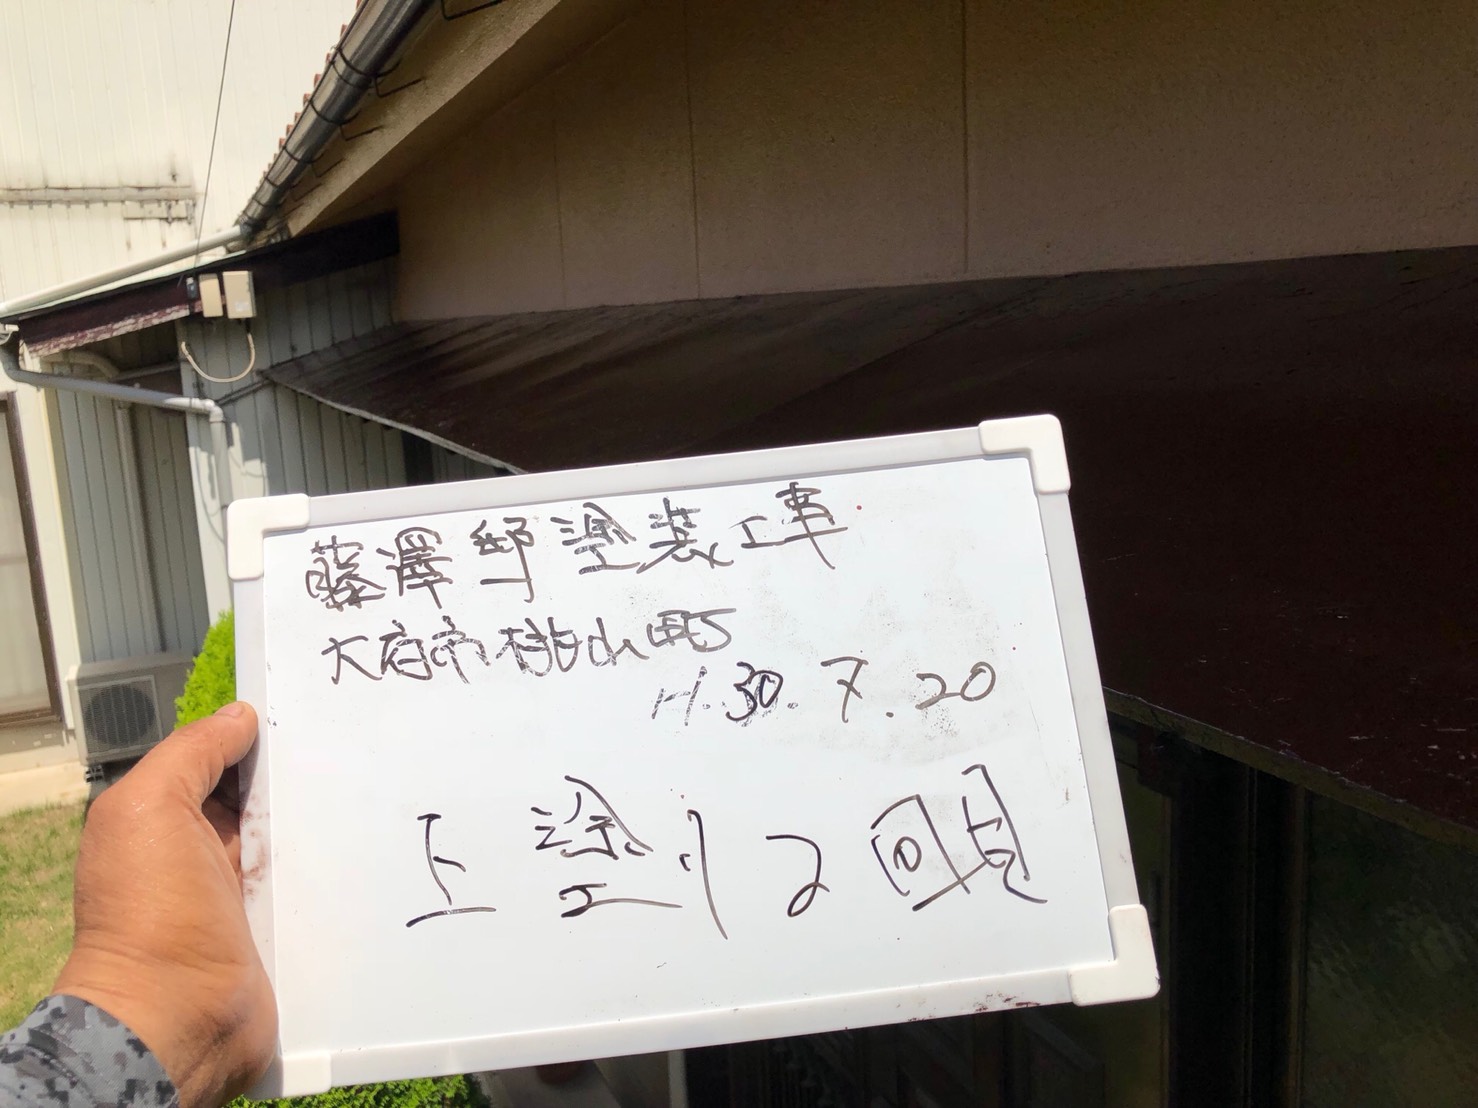 藤澤邸塗装工事
大府市桃山町
H.30.7.20
上塗り2回目